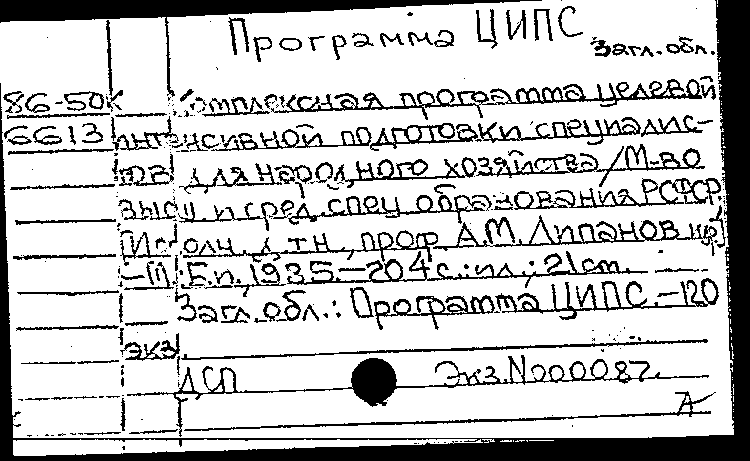 Программа ЦИПС Загл. обл.
86-50К Комплексная программа целевой
6613 интенсивной подготовки специалис-
тов для народного хозяйства / М-во
высш. и сред. спец. образования РСФСР;
Исполн. д.т.н., проф. А.М. Липанов и др.
-М.: Б.и., 1985.-204 с.: ил.; 21 см.
Загл. обл.: Программа ЦИПС.-120
экз.
ДСП Экз.N000087.
А